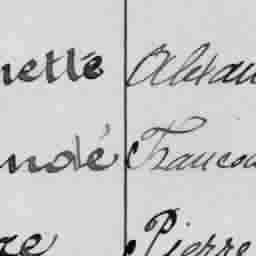 nette Alexan
ndé Francoi
re Pierre